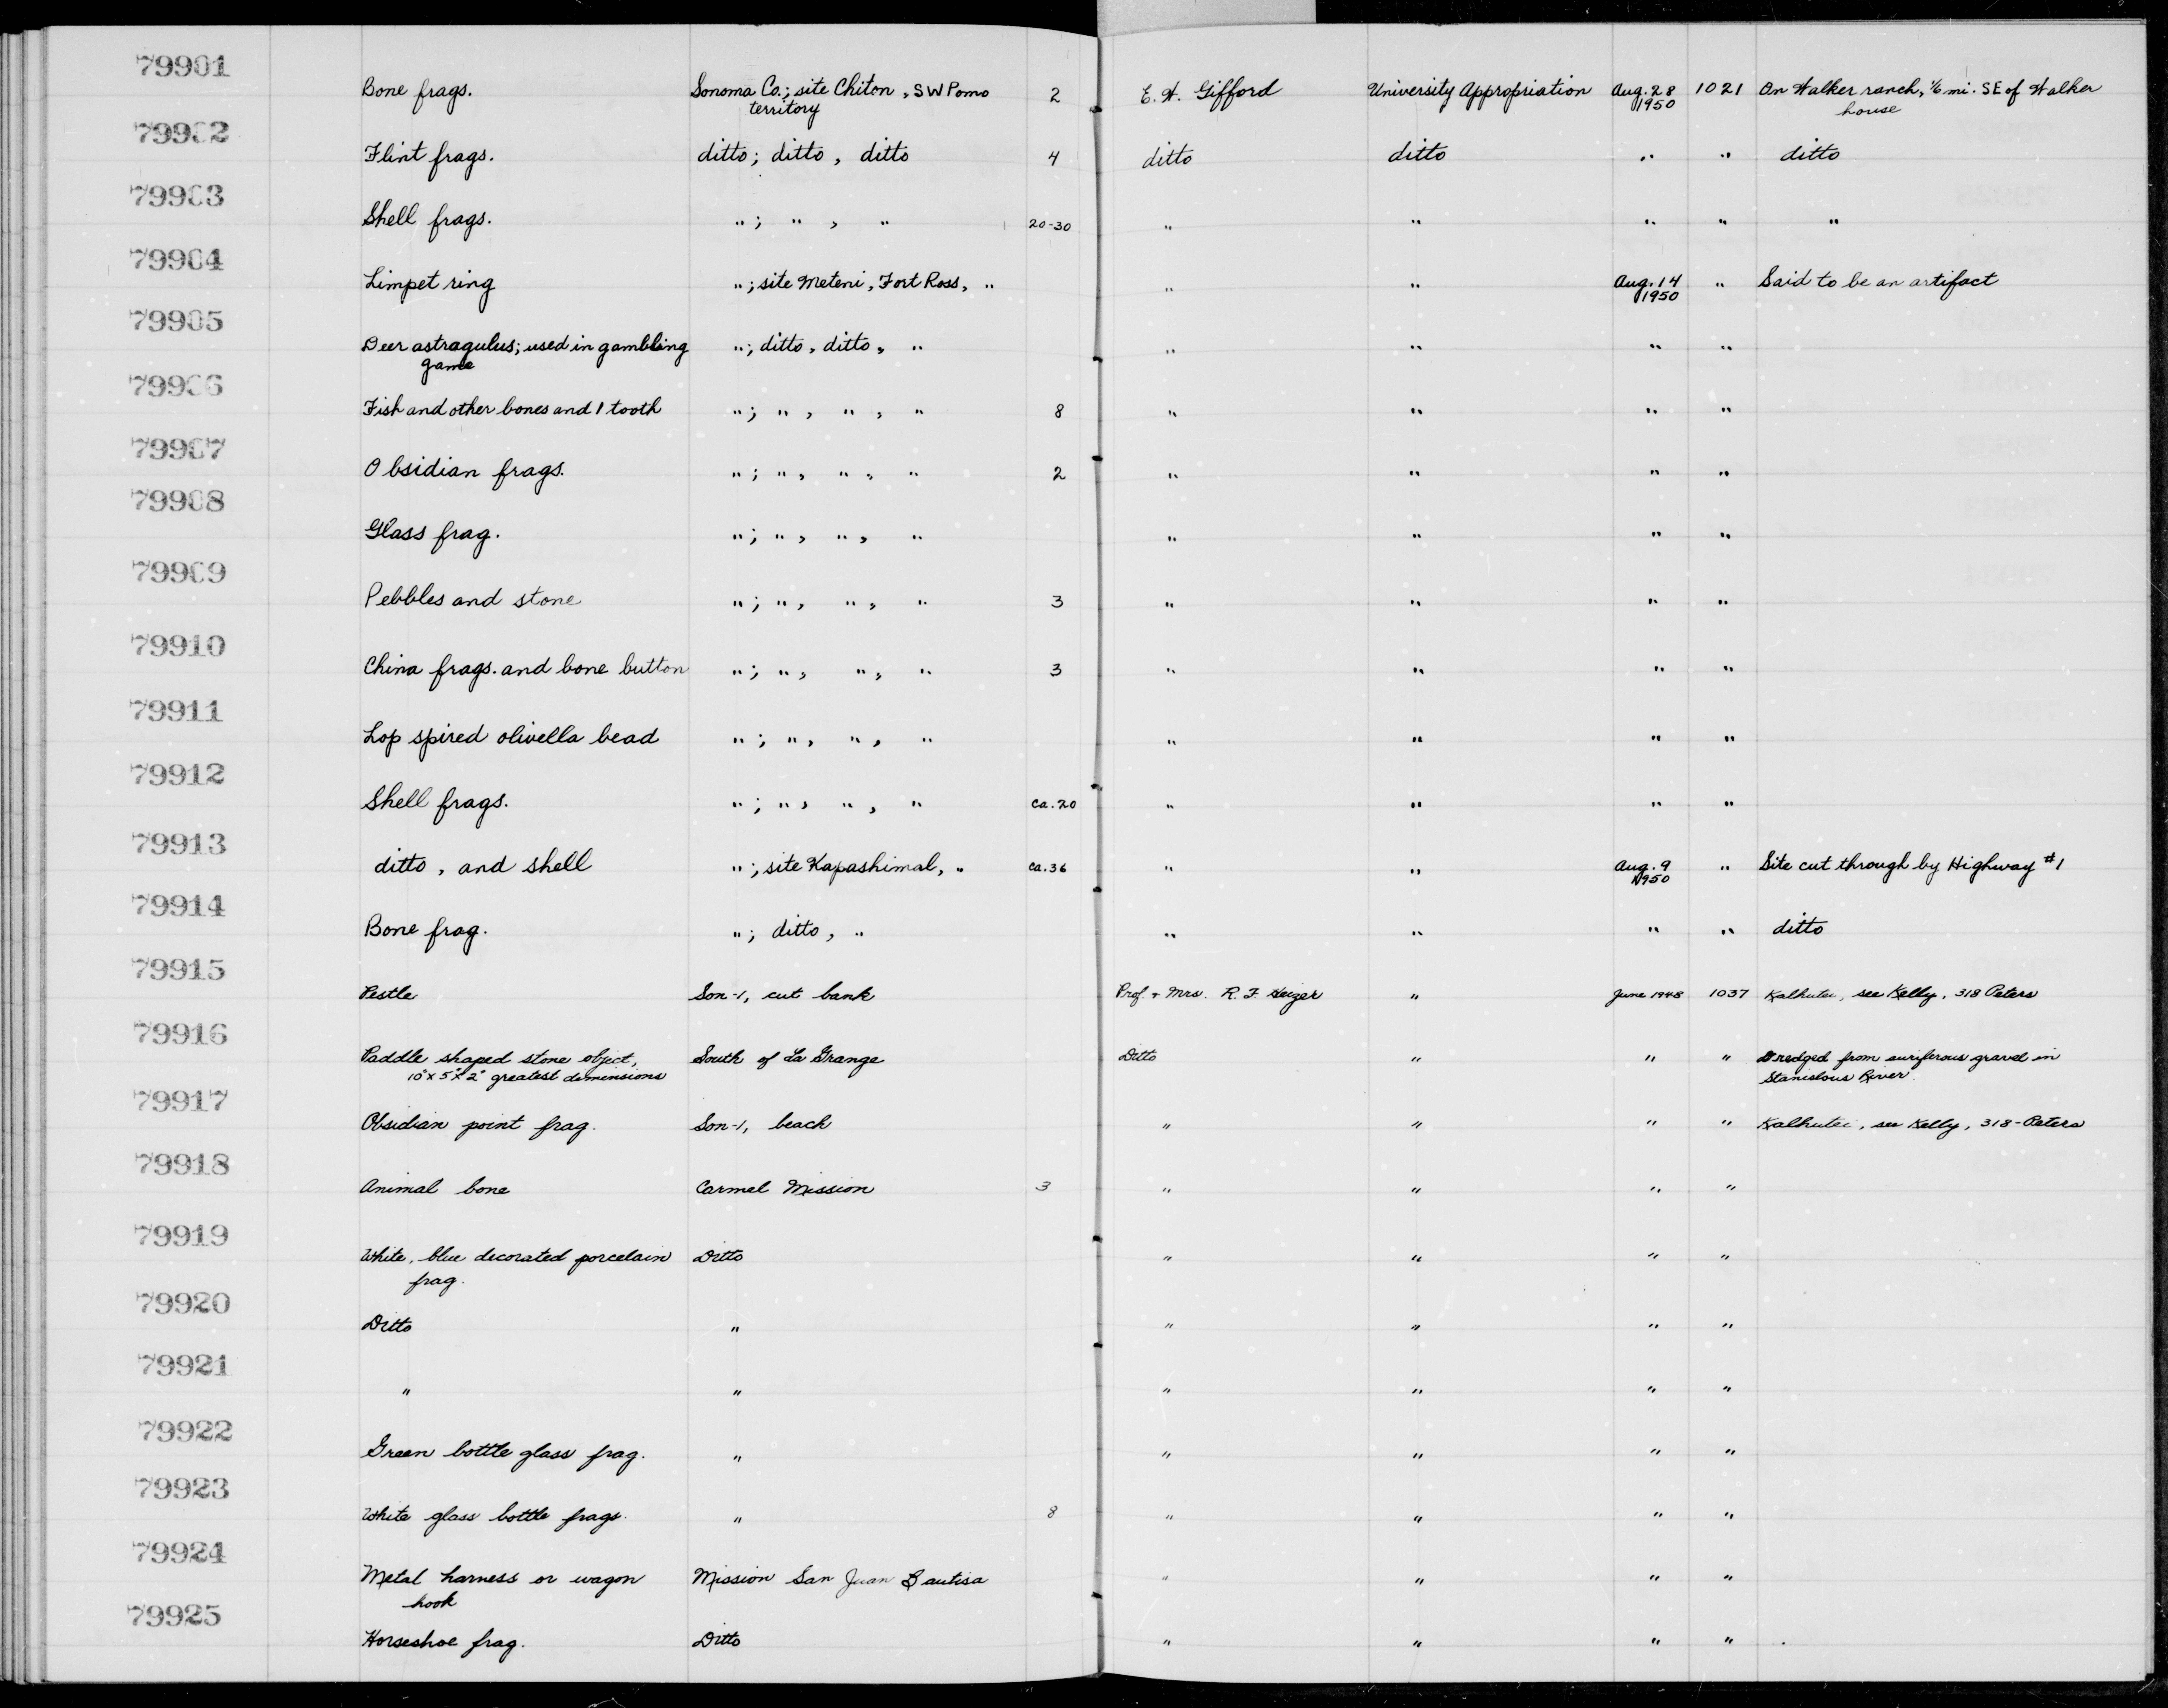 79901
Bone frags. Sonoma Co.; site Chiton, SW Pomo 2 E. W. Gifford University Appropriation Aug. 28 1021 On Walker ranch, 1/6 mi. SE of Walker
territory 1950 house
79902
Flint frags. ditto; ditto, ditto 4 ditto ditto " " ditto
79903
Shell frags. " ; " , " 20-30 " " " " "
79904
Limpet ring " ; site Meteni, Fort Ross, " " " Aug. 14 " Said to be an artifact
1950
79905
Deer astragulus; used in gambling " ; ditto, ditto, " " " " "
game
79906
Fish and other bones and 1 tooth " ; " , " , " 8 " " " "
79907
Obsidian frags. " ; " , " , " 2 " " " "
79908
Glass frag. " ; " , " , " " " " "
79909
Pebbles and stone " ; " , " , " 3 " " " "
79910
China frags. and bone button " ; " , " , " 3 " " " "
79911
Lop spired olivella bead " ; " , " , " " " " "
79912
Shell frags. " ; " , " , " ca. 20 " " " "
79913
ditto, and shell " ; site Kapashimal, " ca. 36 " " Aug. 9 " Site cut through by Highway #1
1950
79914
Bone frag. " ; ditto, " " " " " ditto
79915
Pestle Son-1, cut bank Prof. + Mrs. R. F. Heizer " June 1948 1037 see Kelly, 318 Peters
79916
Paddle shaped stone object, South of La Grange Ditto " " " Dredged from auriferous gravel in
10" x 5" x 2" greatest dimensions Stanislous River
79917
Obsidian point frag. Son-1, beach " " " " see Kelly, 318-Peters
79918
Animal bone Carmel Mission 3 " " " "
79919
White, blue decorated porcelain Ditto " " " "
frag.
79920
Ditto " " " " "
79921
" " " " " "
79922
Green bottle glass frag. " " " " "
79923
White glass bottle frags. " 8 " " " "
79924
Metal harness or wagon Mission San Juan Bautisa " " " "
hook
79925
Horseshoe frag. Ditto " " " "